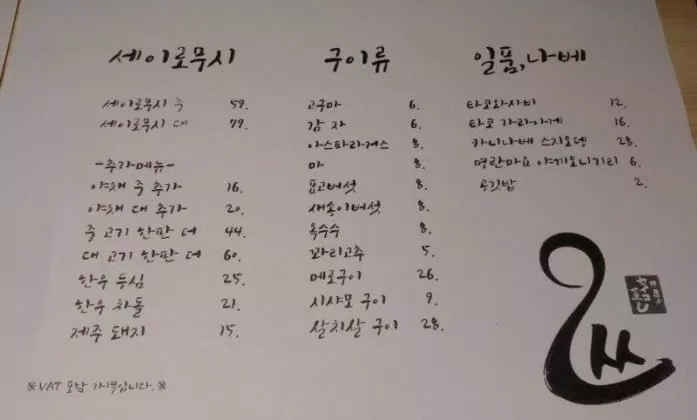 세이로무시
세이로무시 중 59.
세이로무시 대 79.
-추가메뉴-
야채 중 추가 16.
야채 대 추가 20.
중 고기 한판 더 44.
대 고기 한판 더 60.
한우 등심 25.
한우 차돌 21.
제주 돼지 15.
※VAT 포함 가격입니다.※
구이류
고구마 6.
감자 6.
아스파라거스 8.
마 8.
표고버섯 8.
새송이버섯 8.
옥수수 8.
꽈리고추 5.
메로구이 26.
시샤모 구이 9.
살치살 구이 28.
일품,나베
타코와사비 12.
타코 가라아게 16.
카니나베 스지오뎅 28.
명란마요 야끼오니기리 6.
공깃밥 2.